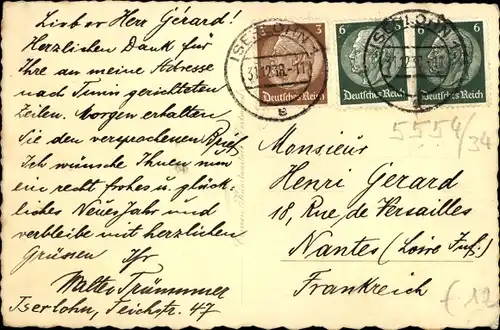 Lieber Herr Gérard!
Herzlichen Dank für
Ihre an meine Adresse
nach Semis gerichteten
Zeilen. Morgen erhalten
Sie den versprochenen Brief.
Ich wünsche Ihnen nun
ein recht frohes u. glück-
liches Neues Jahr und
verbleibe mit herzlichen
Grüssen Ihr
Walter Trümmer
Iserlohn, Teichstr. 47
3
Deutsches Reich
6
Deutsches Reich
6
Deutsches Reich
ISERLOHN 1
31.12.38.-11
e
ISERLOHN 1
5554/34
Monsieur
Henri Gerard
18, Rue de Versailles
Nantes (Loire Inf.)
Frankreich